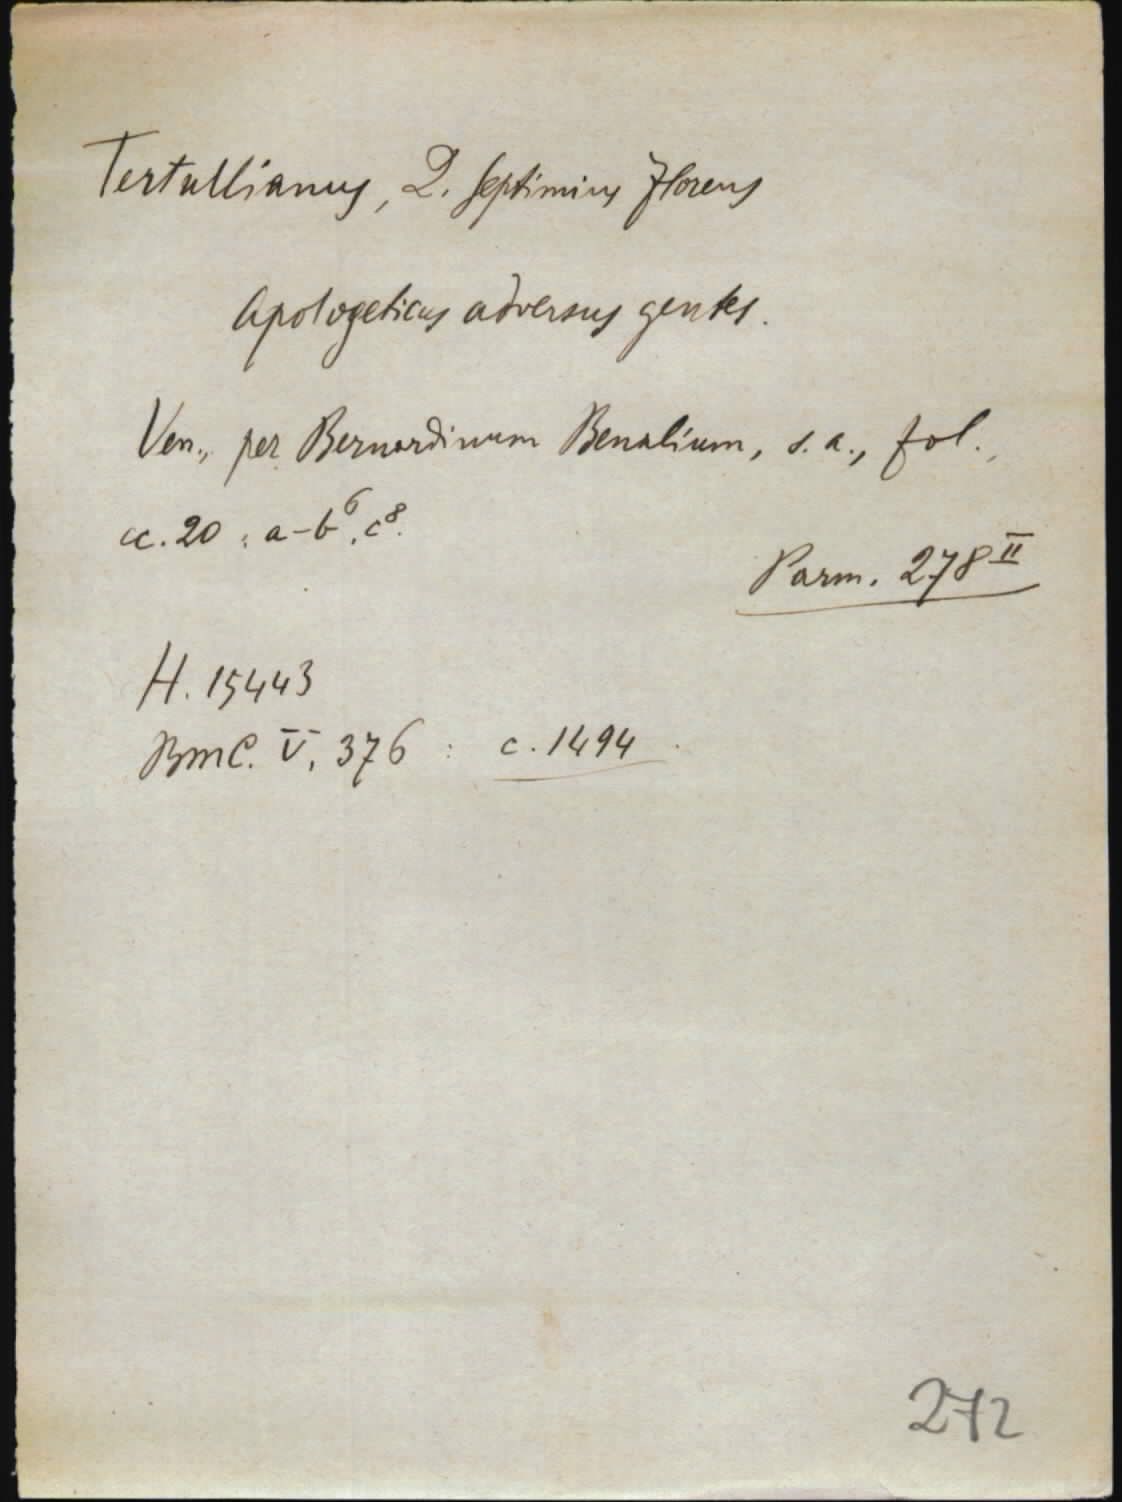 Tertullianus, Q. Septimius Florens
Apologeticus adversus gentes.
Ven., per Bernardinum Benalium, s. a., fol.,
cc. 20 : a-b⁶, c⁸.
Parm. 278 II
H. 15443
BMC. V, 376 : c. 1494.
272